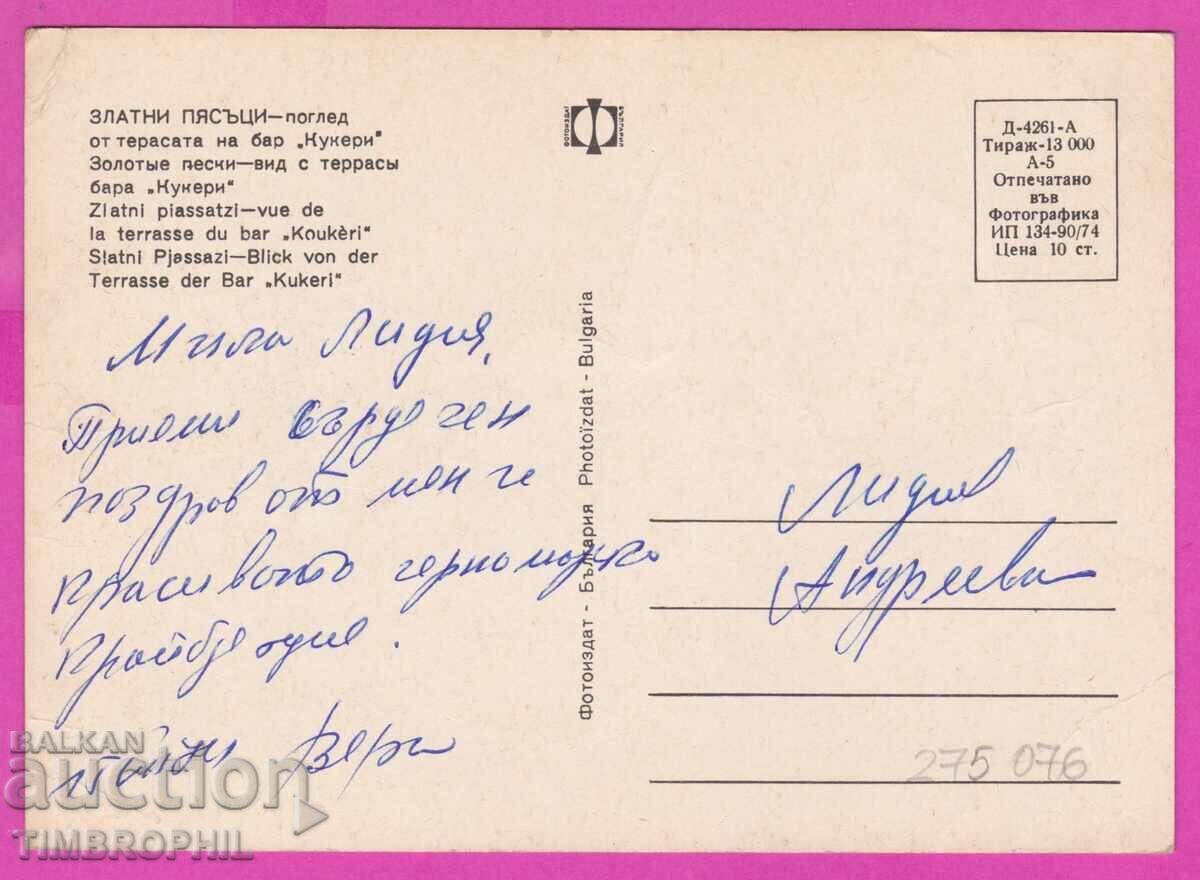 ЗЛАТНИ ПЯСЪЦИ—поглед
от терасата на бар „Кукери"
Золотые пески—вид с террасы
бара „Кукери"
Zlatni piassatzi—vue de
la terrasse du bar „Koukèri"
Slatni Pjassazi—Blick von der
Terrasse der Bar „Kukeri"
ФОТОИЗДАТ
БЪЛГАРИЯ
Д-4261-А
Тираж-13 000
А-5
Отпечатано
във
Фотографика
ИП 134-90/74
Цена 10 ст.
Мила Лидия,
Приеми сърдечен
поздрав от мен и
красивото черноморско
крайбрежие.
Вера
Фотоиздат - България Photoïzdat - Bulgaria
Лидия
Андреева
275 076
BALKAN
auction
TIMBROPHIL